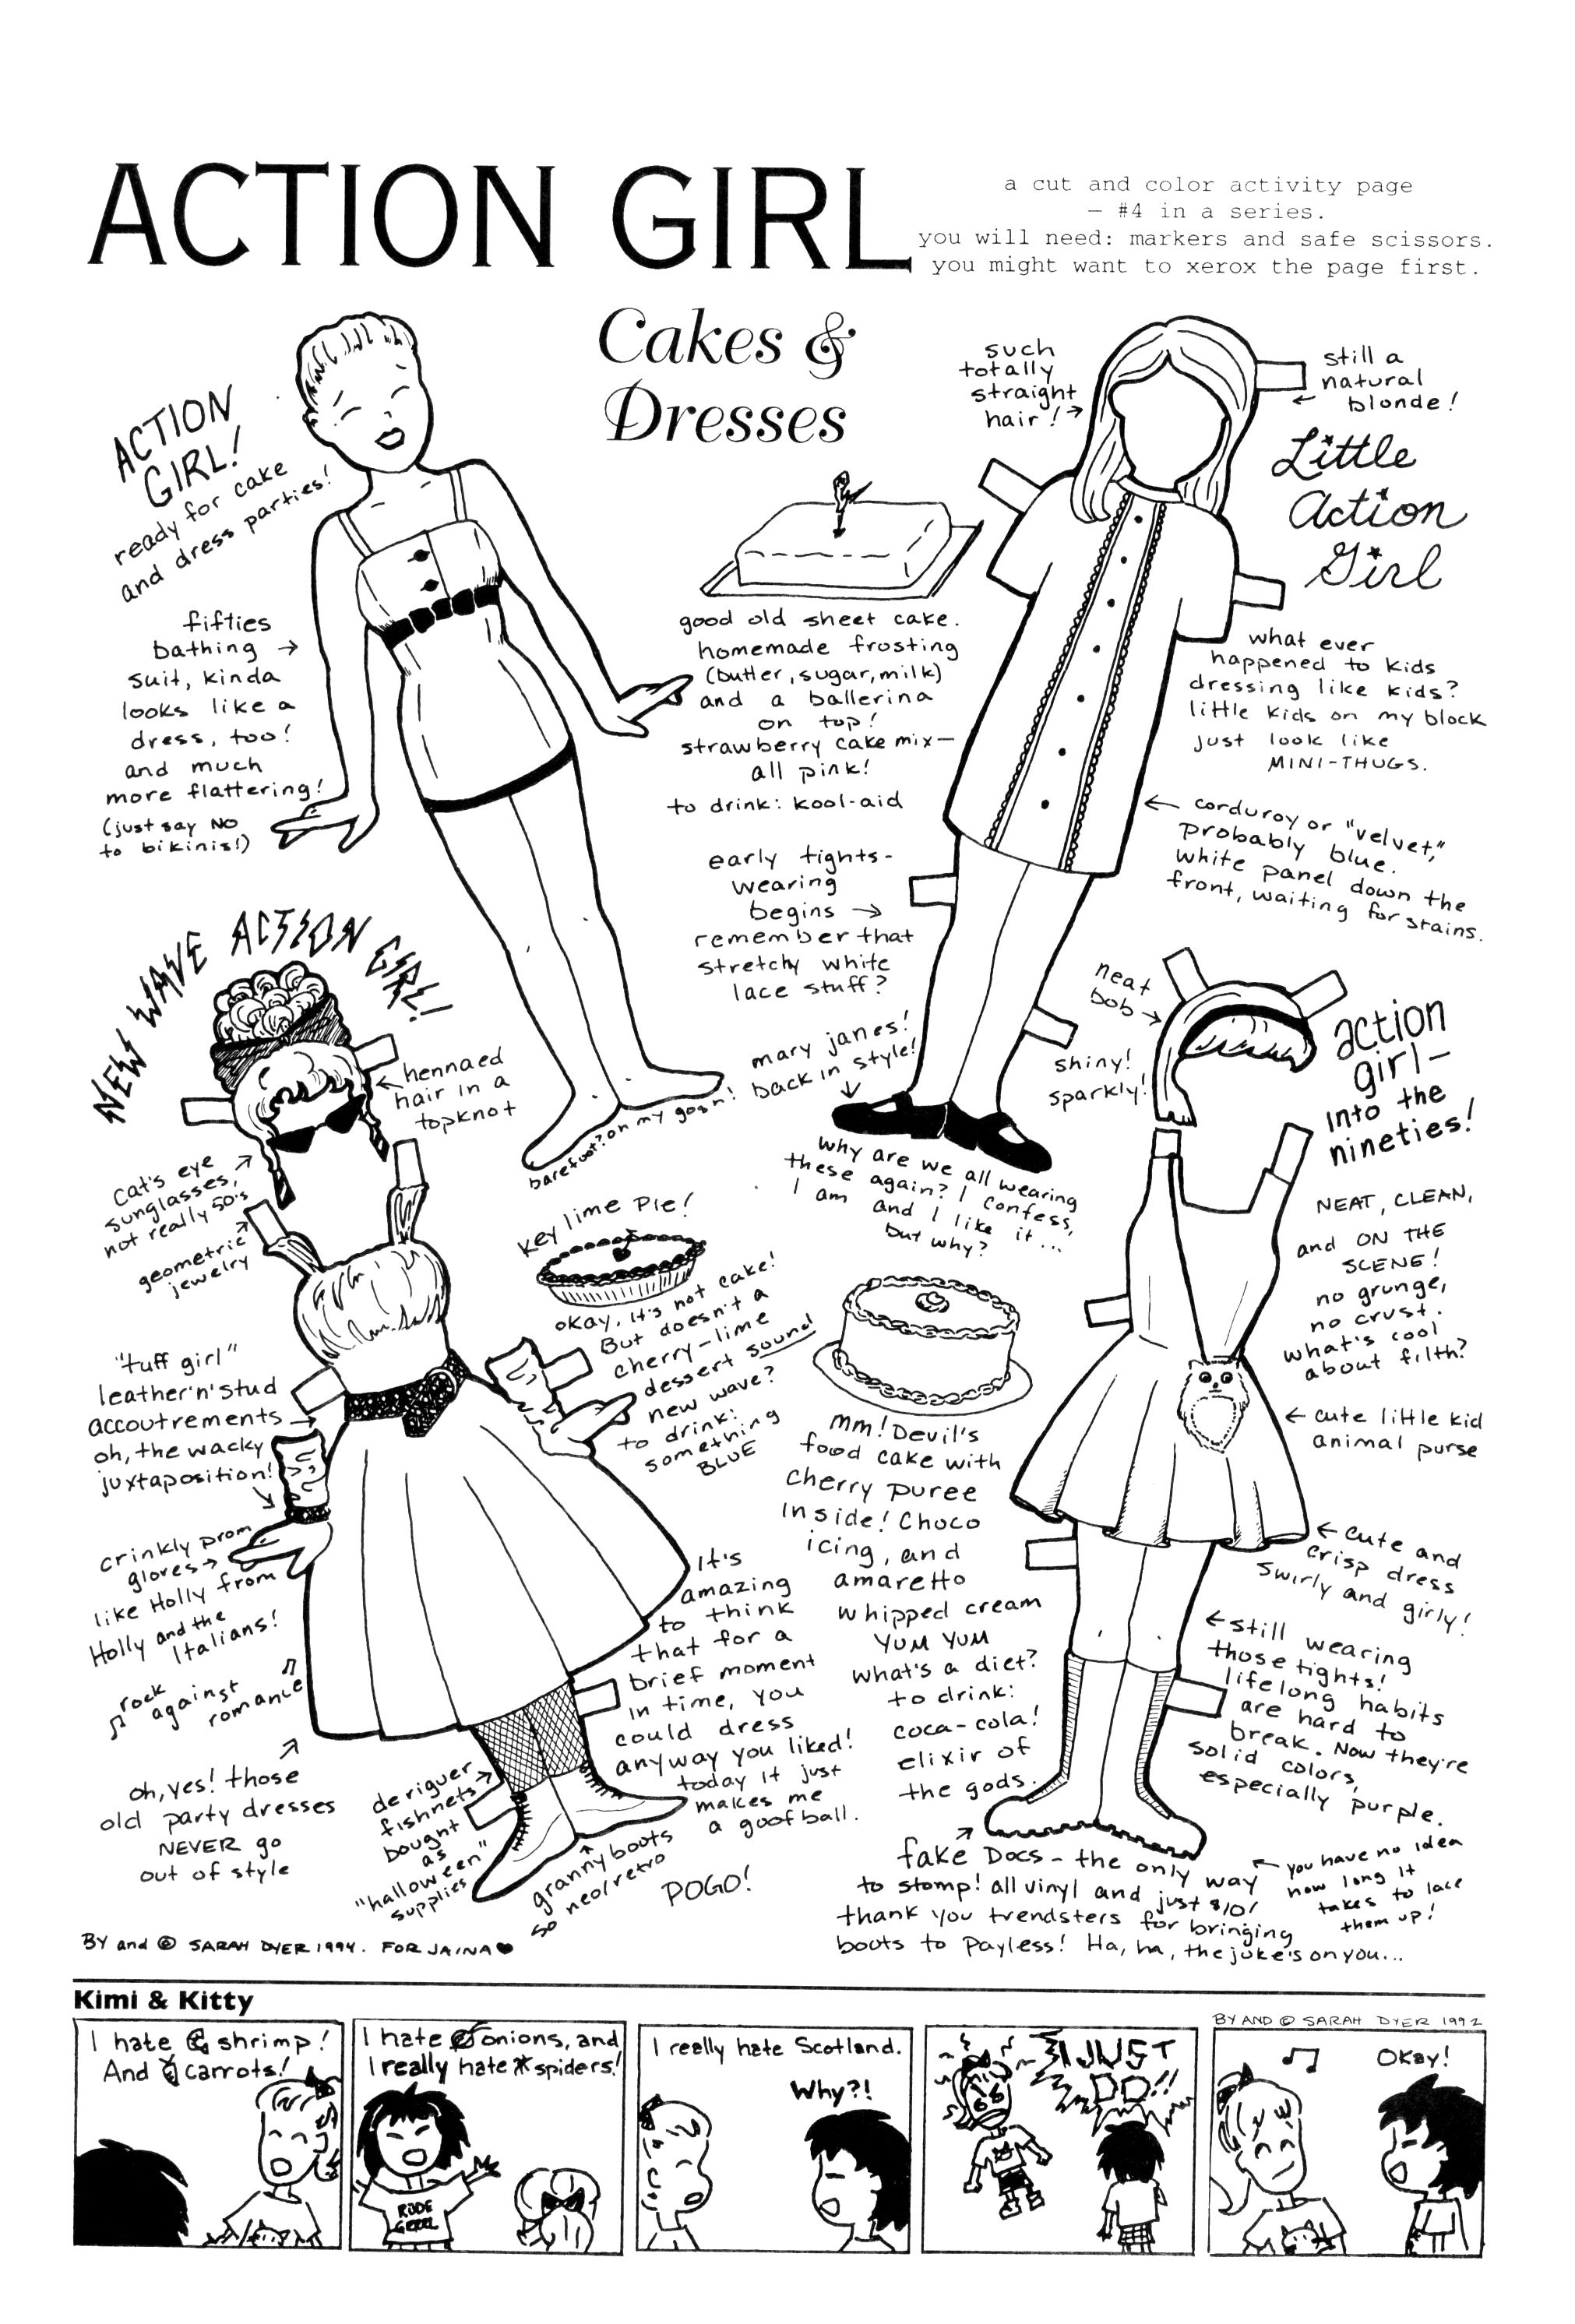 ACTION GIRL
a cut and color activity page
— #4 in a series.
you will need: markers and safe scissors.
you might want to xerox the page first.
Cakes &
Dresses
ACTION
GIRL!
ready for cake
and dress parties!
fifties
bathing →
suit, kinda
looks like a
dress, too!
and much
more flattering!
(just say NO
to bikinis!)
barefoot? oh my gosh!
such
totally
straight
hair! →
still a
natural
← blonde!
Little
Action
Girl
good old sheet cake.
homemade frosting
(butter, sugar, milk)
and a ballerina
on top!
strawberry cake mix—
all pink!
to drink: kool-aid
what ever
happened to kids
dressing like kids?
little kids on my block
just look like
MINI-THUGS.
← corduroy or "velvet,"
probably blue.
white panel down the
front, waiting for stains.
early tights-
wearing
begins →
remember that
stretchy white
lace stuff?
mary janes!
back in style!
↓
why are we all wearing
these again? I confess,
I am and I like it...
but why?
NEW WAVE ACTION GIRL!!
← hennaed
hair in a
topknot
cat's eye
sunglasses,
not really 50's
geometric
jewelry
"tuff girl"
leather 'n' stud
accoutrements →
oh, the wacky
juxtaposition!
crinkly prom
gloves →
like Holly from
Holly and the
Italians!
♫ rock
against
romance ♫
oh, yes! those
old party dresses
NEVER go
out of style
deriguer
fishnets
bought
as
"halloween"
supplies
granny boots
so neo/retro
POGO!
key lime pie!
okay, it's not cake!
But doesn't a
cherry-lime
dessert sound
new wave?
to drink:
something
BLUE
It's
amazing
to think
that for a
brief moment
in time, you
could dress
anyway you liked!
today it just
makes me
a goofball.
mm! Devil's
food cake with
cherry puree
inside! Choco
icing, and
amaretto
whipped cream
YUM YUM
what's a diet?
to drink:
coca-cola!
elixir of
the gods.
neat
bob →
shiny!
sparkly!
action
girl—
into the
nineties!
NEAT, CLEAN,
and ON THE
SCENE!
no grunge,
no crust.
what's cool
about filth?
← cute little kid
animal purse
← cute and
crisp dress
swirly and girly!
← still wearing
those tights!
lifelong habits
are hard to
break. Now they're
solid colors,
especially purple.
fake Docs - the only way
to stomp! all vinyl and just $10!
thank you trendsters for bringing
boots to Payless! Ha, ha, the joke's on you...
← you have no idea
how long it
takes to lace
them up!
BY and © SARAH DYER 1994. FOR JAINA ♥
Kimi & Kitty
BY AND © SARAH DYER 1992
I hate shrimp!
And carrots!
I hate onions, and
I really hate spiders!
RUDE
GRRRL
I really hate Scotland.
Why?!
I JUST
DO!!
♫
Okay!